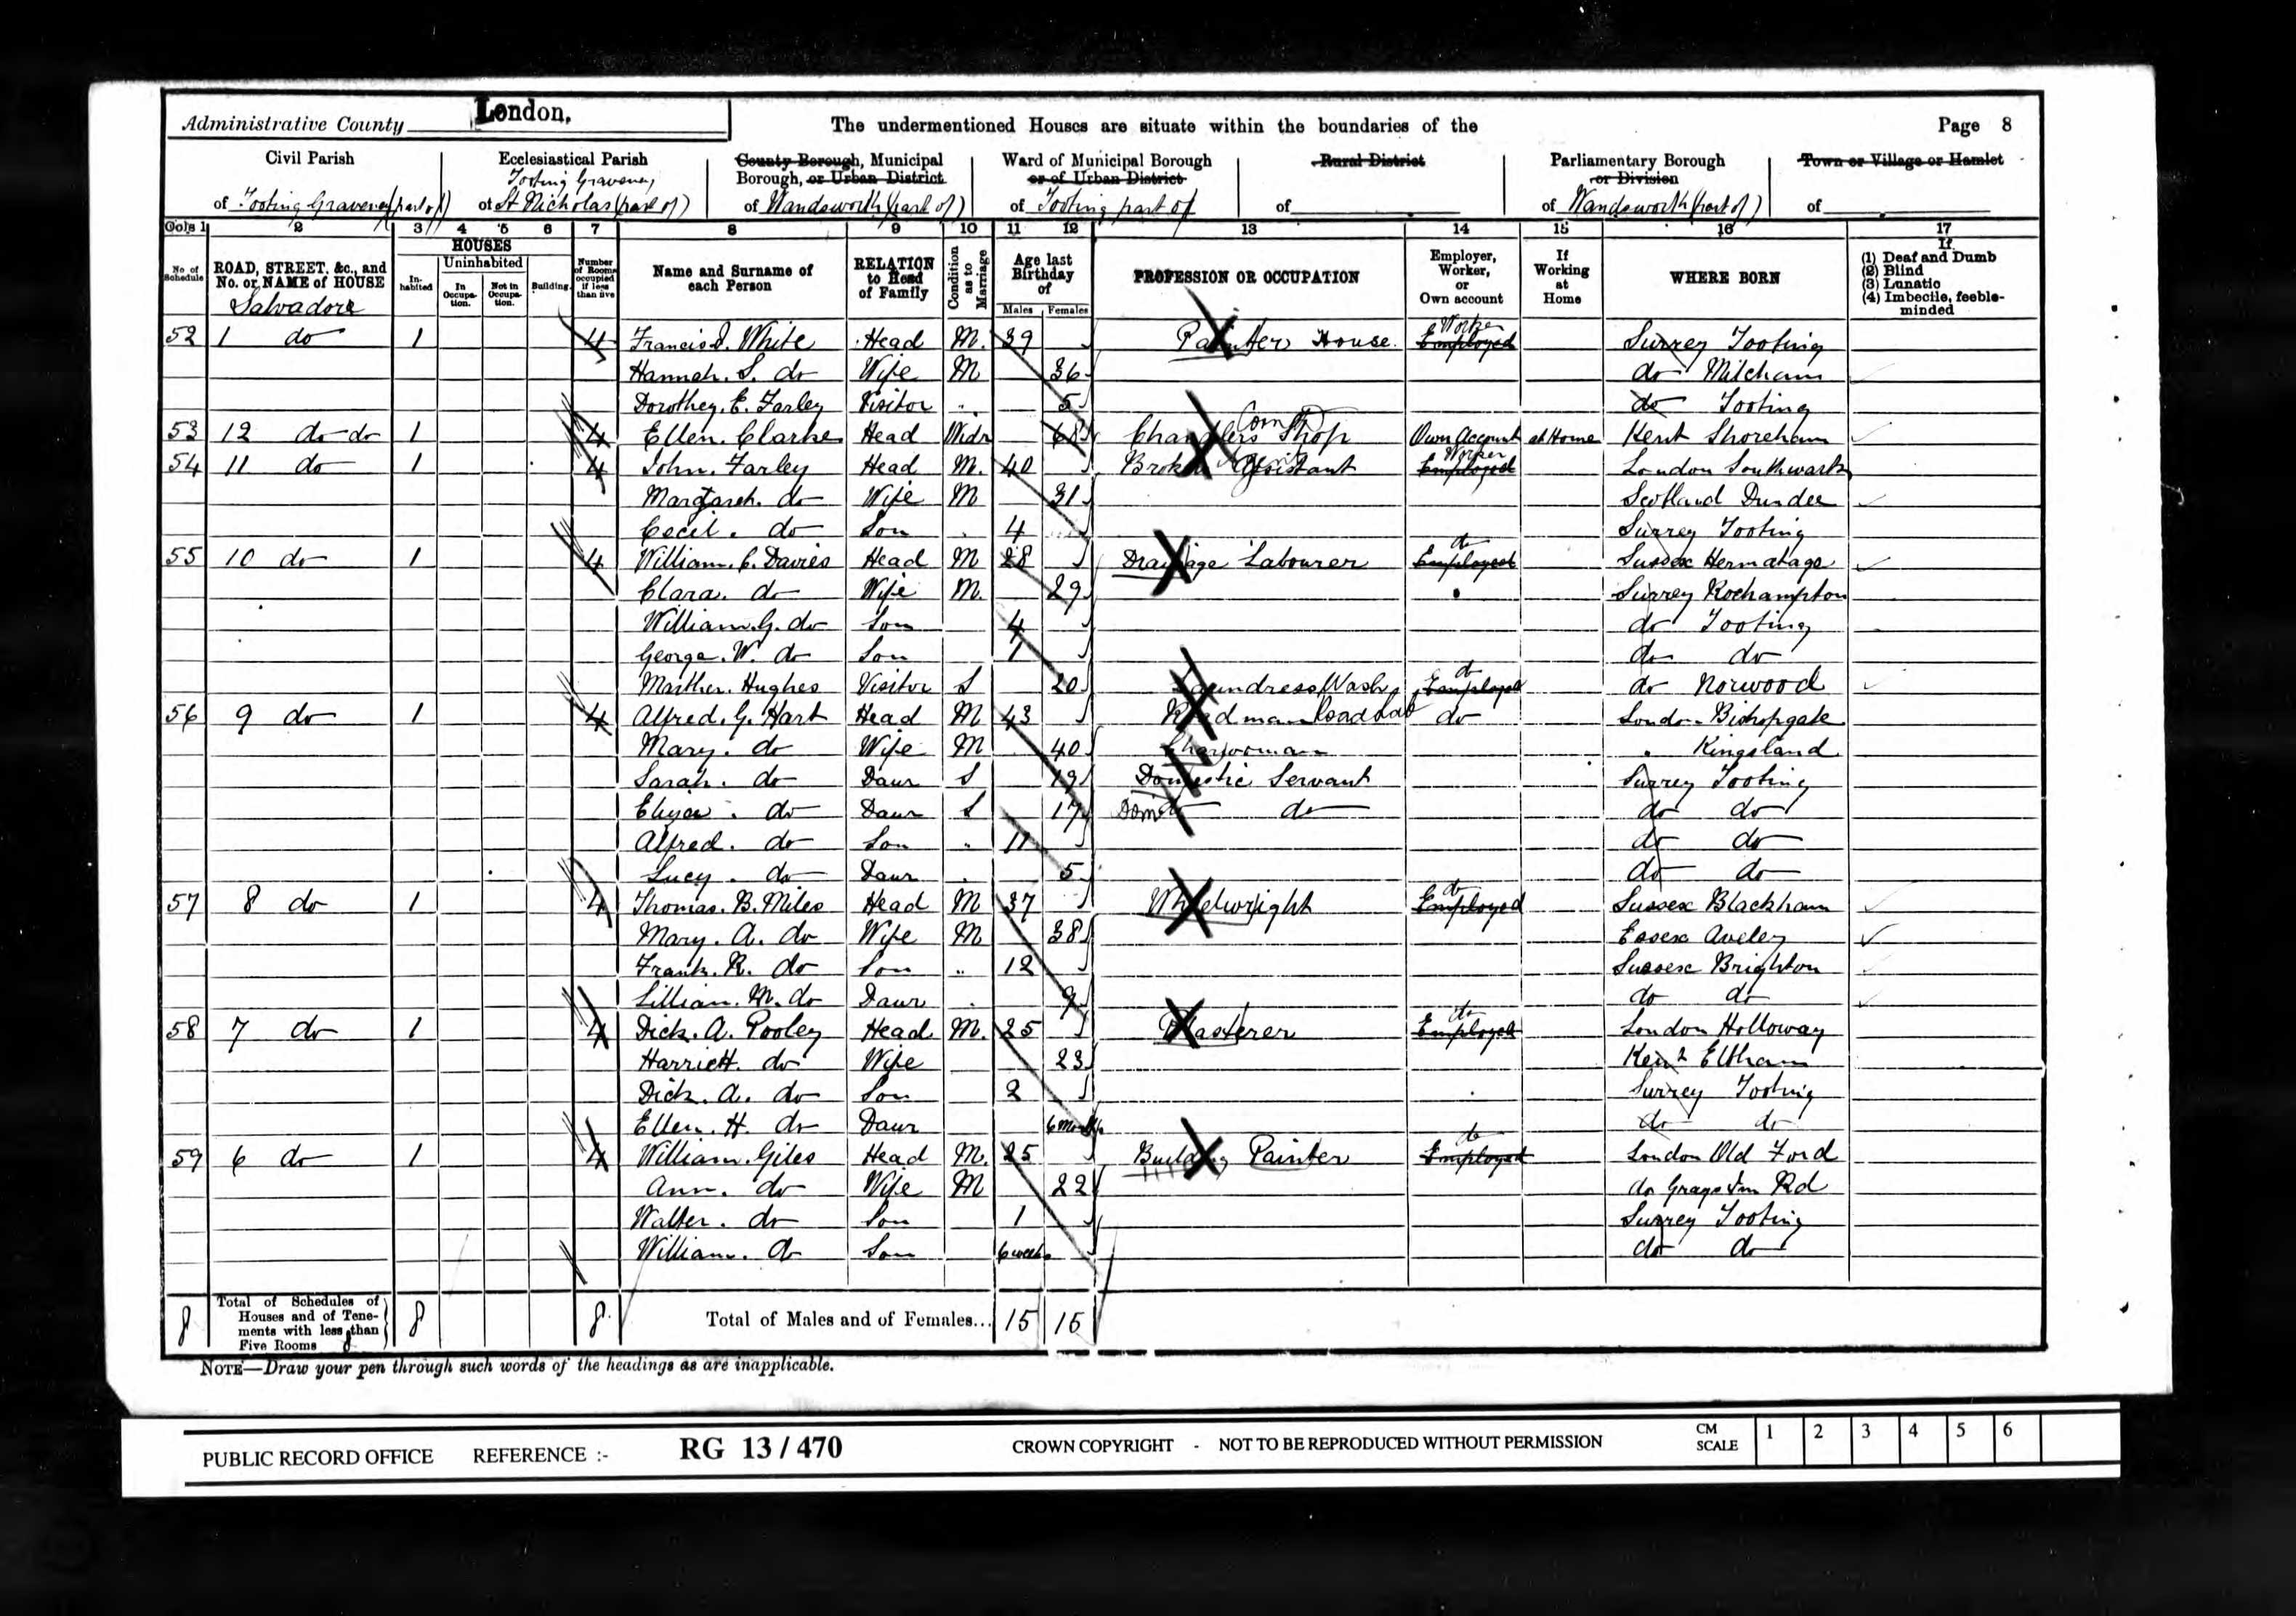 Administrative County London.
The undermentioned Houses are situate within the boundaries of the
Page 8
Civil Parish
of Tooting Graveney (part of)
Ecclesiastical Parish
Tooting Graveney
of St Nicholas (part of)
County Borough, Municipal
Borough, or Urban District
of Wandsworth (part of)
Ward of Municipal Borough
or of Urban District
of Tooting part of
Rural District
of
Parliamentary Borough
or Division
of Wandsworth (part of)
Town or Village or Hamlet
of
Cols 1 2 3 4 5 6 7 8 9 10 11 12 13 14 15 16 17
No of Schedule
ROAD, STREET, &c., and
No. or NAME of HOUSE
HOUSES
In-habited
Uninhabited
In Occupa-tion.
Not in Occupa-tion.
Building.
Number of Rooms occupied if less than five
Name and Surname of
each Person
RELATION
to Head
of Family
Condition as to Marriage
Age last
Birthday
of
Males Females
PROFESSION OR OCCUPATION
Employer,
Worker,
or
Own account
If
Working
at
Home
WHERE BORN
If
(1) Deaf and Dumb
(2) Blind
(3) Lunatic
(4) Imbecile, feeble-
minded
Salvadore
52 1 do 1 4 Francis J. White Head M. 39 Painter House Worker Employed Surrey Tooting
Hannah. S. do Wife M 36 do Mitcham
Dorothey. E. Farley Visitor 5 do Tooting
53 12 do do 1 4 Ellen. Clarke Head Widr Chandlers Shop Own Account at Home Kent Shoreham
54 11 do 1 4 John. Farley Head M. 40 Broker Assistant Worker Employed London Southwark
Margaret. do Wife M 31 Scotland Dundee
Cecil. do Son 4 Surrey Tooting
55 10 do 1 4 William. C. Davies Head M 28 Drainage Labourer do Employed Sussex Hermatage
Clara. do Wife M. 29 Surrey Roehampton
William. G. do Son 4 do Tooting
George. W. do Son 1 do do
Marther. Hughes Visitor S 20 Laundress Wash do Employed do Norwood
56 9 do 1 4 Alfred. G. Hart Head M 43 Roadman Road Lab do London Bishopgate
Mary. do Wife M 40 Charwoman " Kingsland
Sarah. do Daur S 19 Domestic Servant Surrey Tooting
Eliza. do Daur S 17 Dom do do do do
Alfred. do Son " 11 do do
Lucy. do Daur 5 do do
57 8 do 1 4 Thomas. B. Miles Head M 37 Wheelwright do Employed Sussex Blackham
Mary. A. do Wife M 38 Essex Aveley
Frank. R. do Son " 12 Sussex Brighton
Lillian. M. do Daur 9 do do
58 7 do 1 4 Dick. A. Pooley Head M. 25 Plasterer do Employed London Holloway
Harriett. do Wife 23 Kent Eltham
Dick. A. do Son 2 Surrey Tooting
Ellen. H. do Daur 6 Months do do
59 6 do 1 4 William. Giles Head M. 25 Building Painter do Employed London Old Ford
Ann. do Wife M 22 do Grays Inn Rd
Walter. do Son 1 Surrey Tooting
William. do Son 6 weeks do do
8 Total of Schedules of
Houses and of Tene-
ments with less than
Five Rooms 8 8 Total of Males and of Females... 15 15
NOTE—Draw your pen through such words of the headings as are inapplicable.
PUBLIC RECORD OFFICE REFERENCE :- RG 13 / 470 CROWN COPYRIGHT - NOT TO BE REPRODUCED WITHOUT PERMISSION CM SCALE 1 2 3 4 5 6